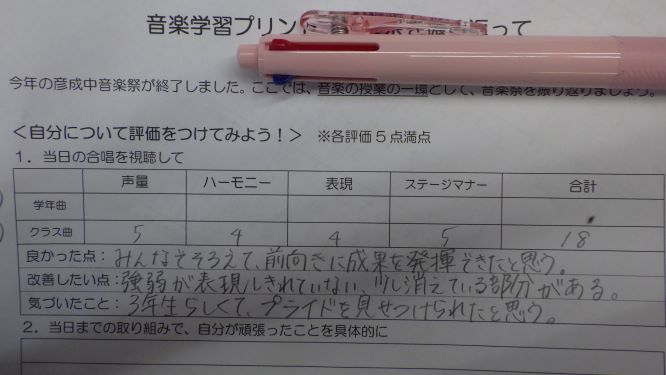 音楽学習プリント を振り返って
今年の彦成中音楽祭が終了しました。ここでは、音楽の授業の一環として、音楽祭を振り返りましょう。
＜自分について評価をつけてみよう！＞ ※各評価５点満点
１．当日の合唱を視聴して
声量 ハーモニー 表現 ステージマナー 合計
学年曲
クラス曲 5 4 4 5 18
良かった点：みんなそろえて、前向きに成果を発揮できたと思う。
改善したい点：強弱が表現しきれていない、少し消えている部分がある。
気づいたこと：3年生らしくて、プライドを見せつけられたと思う。
２．当日までの取り組みで、自分が頑張ったことを具体的に